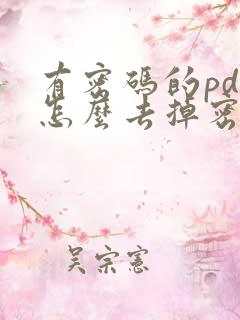 有密碼的pd
怎麼去掉密
吴宗憲